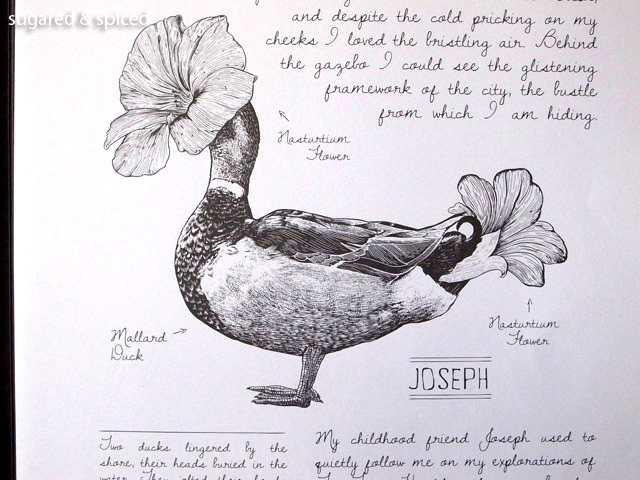 sugared & spiced
and despite the cold pricking on my
cheeks I loved the bristling air. Behind
the gazebo I could see the glistening
framework of the city, the bustle
from which I am hiding.
Nasturtium
Flower
Mallard
Duck
Nasturtium
Flower
JOSEPH
Two ducks lingered by the
shore, their heads buried in the
My childhood friend Joseph used to
quietly follow me on my explorations of